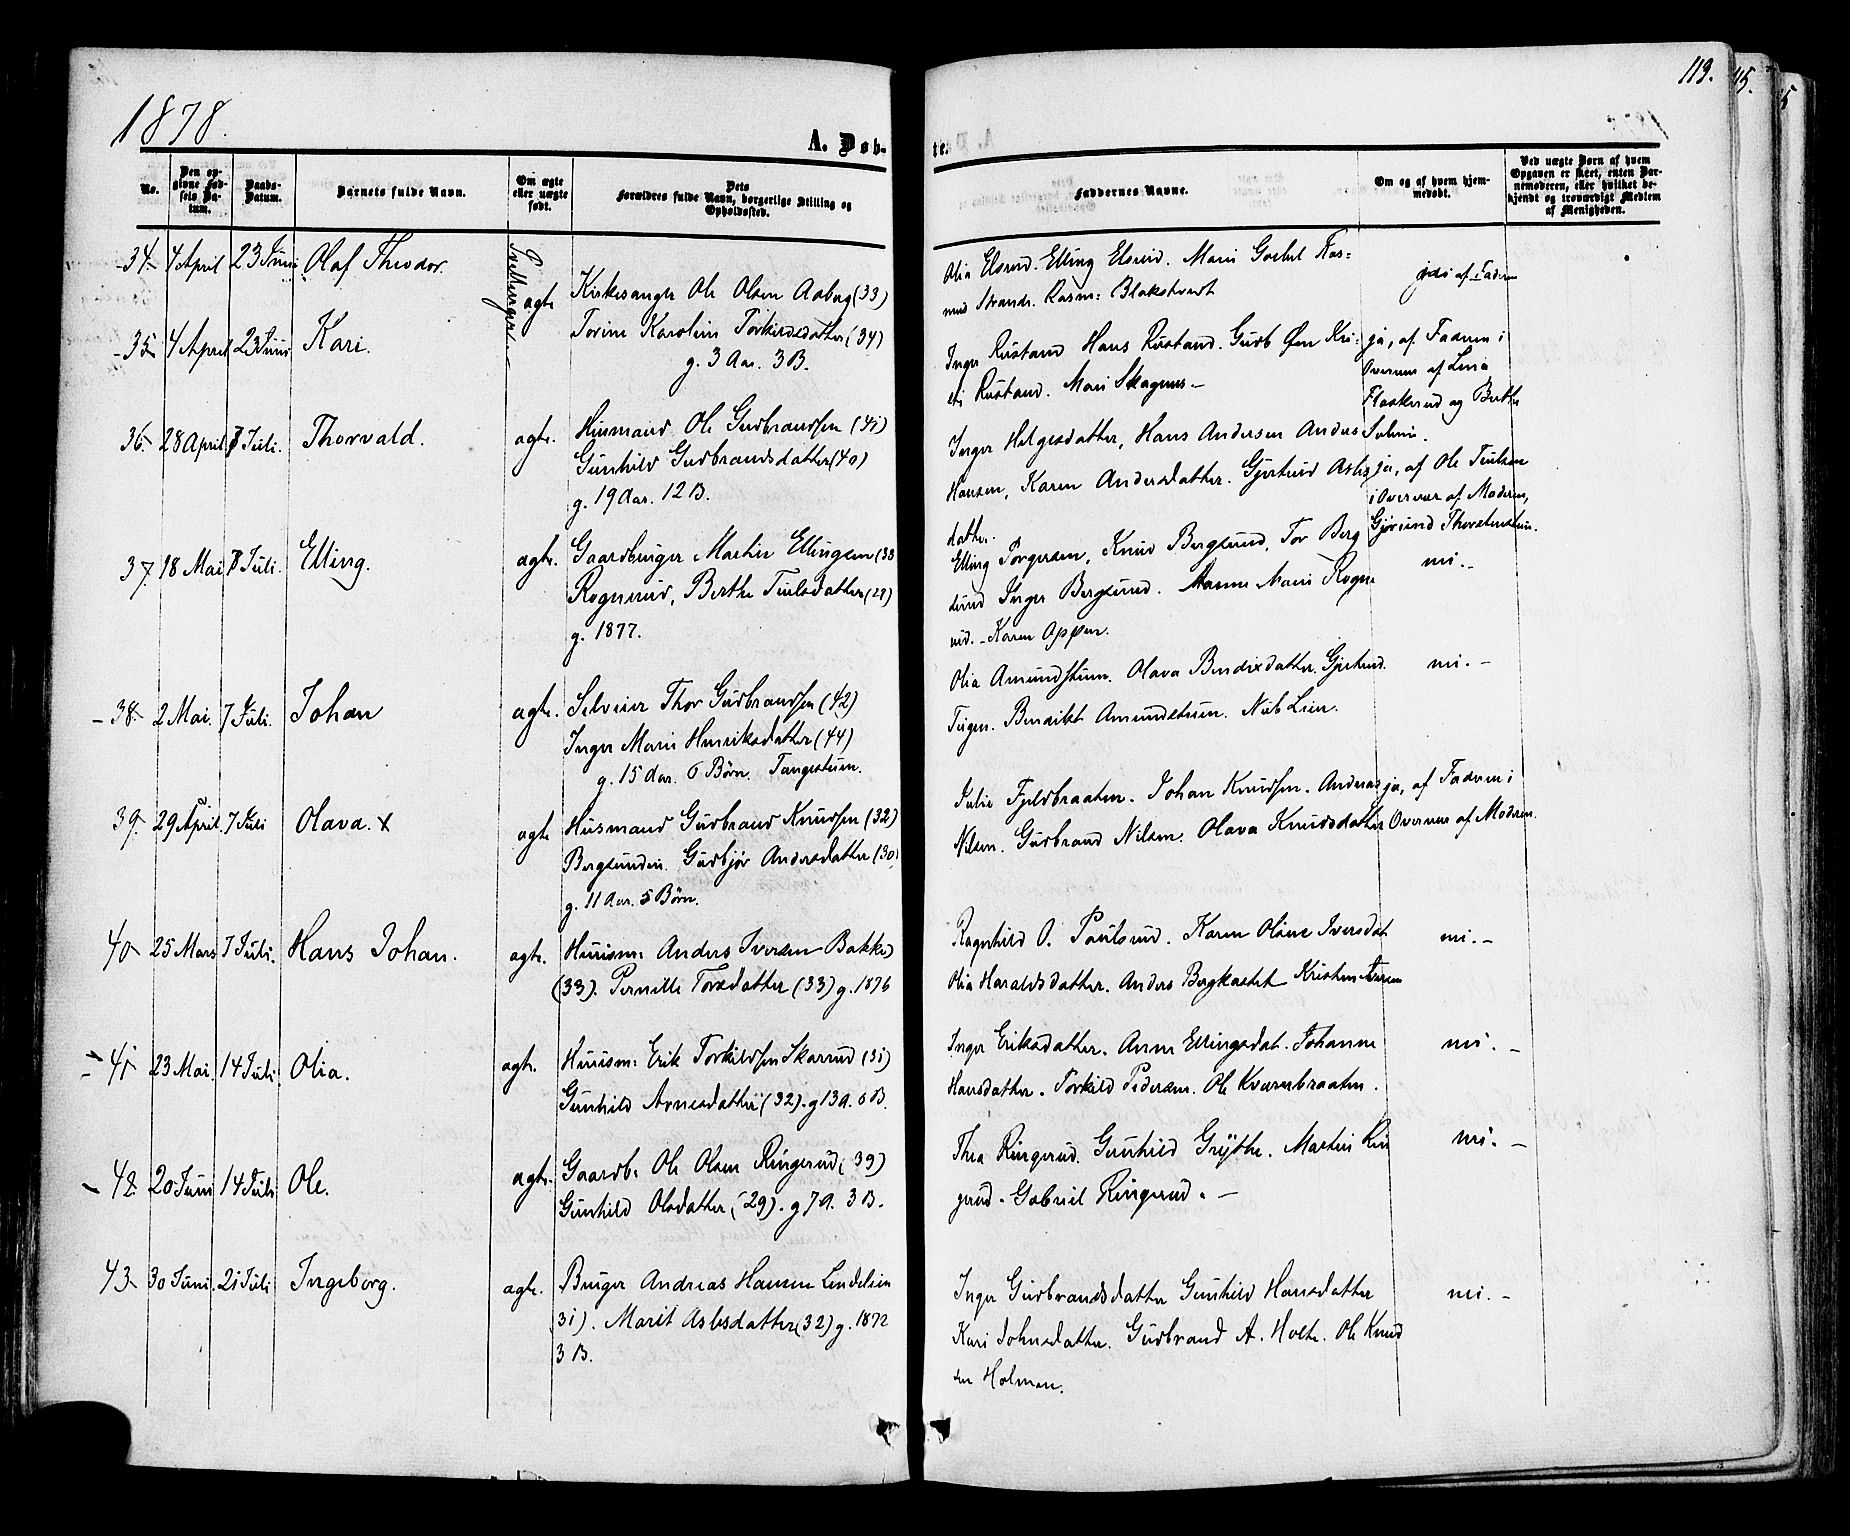 1878.
113.
115.
A. Døb-
te.
No.
Den opgivne Fødsels Datum.
Daabs-Datum.
Barnets fulde Navn.
Om ægte eller uægte født.
Dets Forældres fulde Navn, borgerlige Stilling og Opholdssted.
Faddernes Navne.
Om og af hvem hjemmedøbt.
Ved uægte Børn af hvem Opgaven er skeet, enten Barnemoderen, eller hvilket bekjendt og troværdigt Medlem af Menigheden.
34. 4 April 23 Juni Olaf Theodor.
Tvillinger
ægte Kirkesanger Ole Olsen Aaberg (33)
Torine Karoline Torkildsdatter (34)
g. 3 Aar. 3 B.
Olia Elsrud. Elling Elsrud. Mari Goebel Ras=
mus Strande. Rasm: Blakstvedt
ja af Faderen
35. 4 April 23 Juni Kari.
Inger Rustand Hans Rustand. Gudb Øen Kri-
sti Rustand. Mari Skagnes.
ja, af Faderen i
Overvær af Lina
Flaskerud og Berthe
Solemi.
36. 28 April 7 Juli. Thorvald. ægte.
Husmand Ole Gudbrandsen (41)
Gunhild Gudbrandsdatter (40)
g. 19 Aar. 12 B.
Inger Helgesdatter, Hans Andersen Anders
Hansen, Karen Andersdatter. Gjertrud Asles
datter.
ja, af Ole Trulsen
i Overvær af Moderen,
Gjørund Thorstensen.
37. 18 Mai 7 Juli. Elling. ægte.
Gaardbruger Martin Ellingsen (33
Rognerud, Berthe Trulsdatter (28)
g. 1877.
Elling Torgersen, Knud Bergsund, Tor Berg
sund Inger Bergsund. Anne Mari Rogne
rud. Karen Oppen.
nei.
38. 2 Mai. 7 Juli. Johan ægte.
Selveier Thor Gudbrandsen (42)
Inger Marie Henriksdatter (44)
g. 15 Aar. 6 Børn. Tangestuen.
Olia Amundstuen. Olava Bendixdatter. Gjertrud
Teigen. Bendikt Amundstuen. Nub Lien.
nei.
39. 29 April. 7 Juli Olava. x ægte
Husmand Gudbrand Knudsen (32)
Bergsundeie. Gudbjør Andersdatter (30)
g. 11 Aar. 5 Børn.
Julie Fjeldbraaten. Johan Knudsen. Anders
Nilsen. Gudbrand Nilsen. Olava Knudsdatter
ja, af Faderen i
Overvær af Moderen.
40. 25 Mars 7 Juli. Hans Johan. ægte.
Huusm: Anders Iversen Bakke)
(33). Pernille Torsdatter (33) g. 1876
Ragnhild O. Paulsrud. Karen Oline Iversdat
Olia Haraldsdatter. Anders Bergkastet Kristen Iversen
nei.
41. 23 Mai. 14 Juli. Olia. ægte.
Huusm: Erik Torkildsen Skarrud (31)
Gunhild Arnesdatter (32). g 13 A. 6 B.
Inger Eriksdatter. Anne Ellingsdat. Johanne
Hansdatter. Torkild Pedersen. Ole Kvernbraaten.
nei.
42. 20 Juni 14 Juli Ole. ægte.
Gaardb: Ole Olsen Ringerud (39)
Gunhild Olsdatter (29). g 7 A. 3 B.
Thea Ringerud. Gunhild Grythe. Martin Rin
gerud. Gabriel Ringerud.
nei.
43. 30 Juni. 21 Juli Ingeborg. ægte.
Bruger Andreas Hansen Lindelien
31). Marit Aslesdatter (32) g. 1872
3 B.
Inger Gudbrandsdatter Gunhild Hansdatter
Kari Johnsdatter. Gudbrand A. Holte. Ole Knud
sen Holmen.
nei.